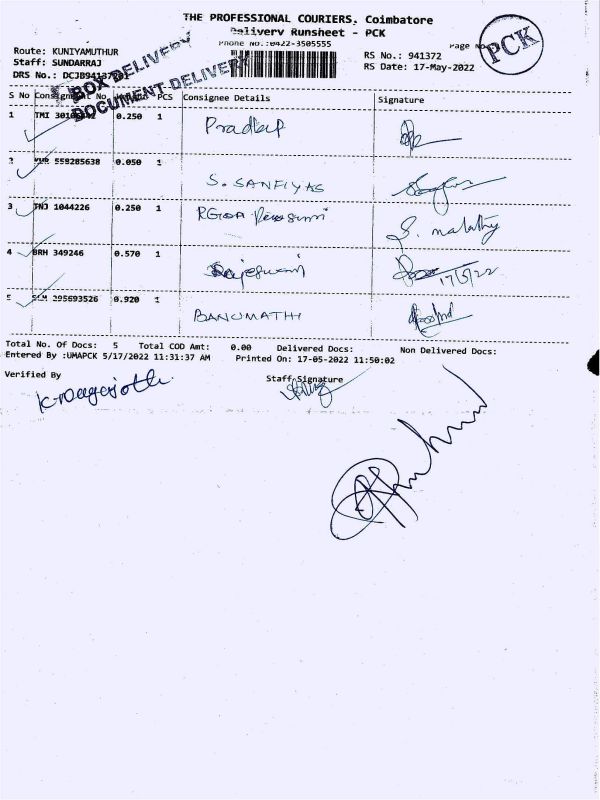 THE PROFESSIONAL COURIERS, Coimbatore
Delivery Runsheet - PCK
Phone No.:0422-3505555
Page No
PCK
Route: KUNIYAMUTHUR
Staff: SUNDARRAJ
DRS No.:
RS No.: 941372
RS Date: 17-May-2022
BOX DELIVERY
DOCUMENT DELIVERY
S No Consignment No PCS Consignee Details Signature
1 TMI 0.250 1 Pradeep
2 559285638 0.050 1
S. SANFIYAS
3 TNJ 1044226 0.250 1
S. malathy
4 BRH 349246 0.570 1 Rajeswari
17/5/22
5 295693526 0.920 1
BANUMATHI
Total No. Of Docs: 5 Total COD Amt: 0.00 Delivered Docs: Non Delivered Docs:
Entered By :UMAPCK 5/17/2022 11:31:37 AM Printed On: 17-05-2022 11:50:02
Verified By Staff Signature